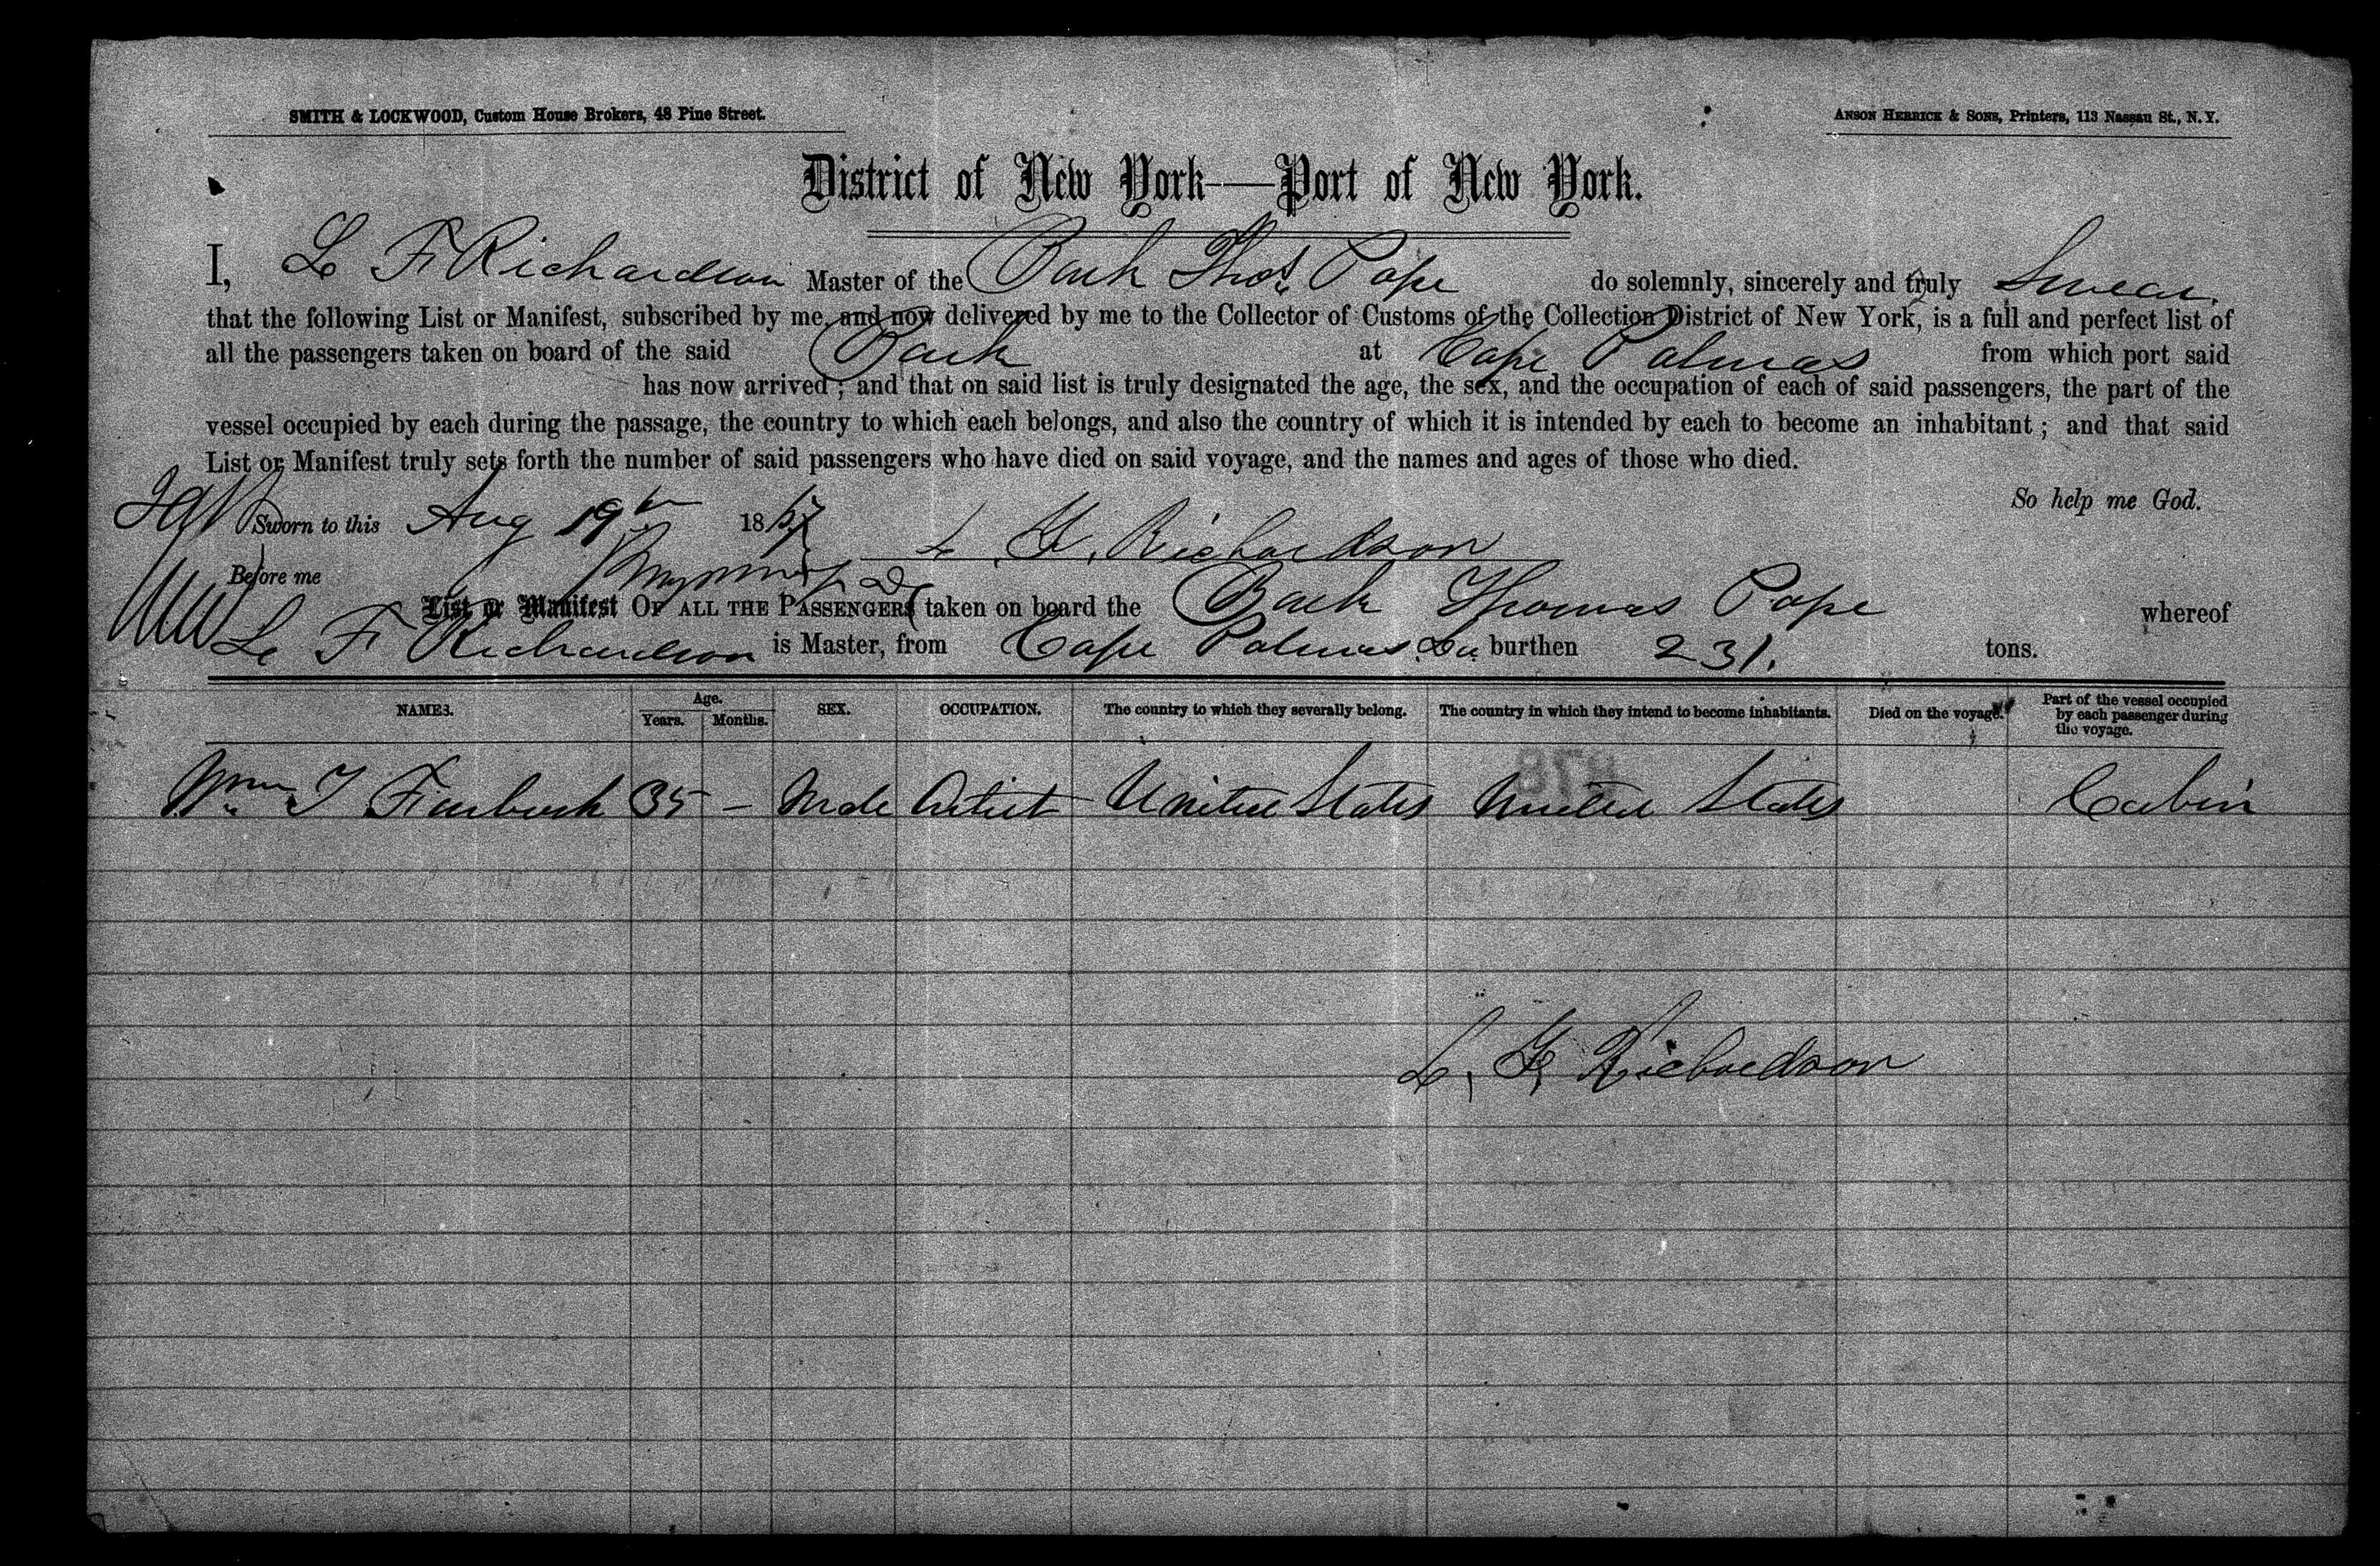 SMITH & LOCKWOOD, Custom House Brokers, 48 Pine Street.
ANSON HERRICK & SONS, Printers, 113 Nassau St., N.Y.
District of New York—Port of New York.
I, L F Richardson Master of the Bark Thos. Pope do solemnly, sincerely and truly Swear
that the following List or Manifest, subscribed by me, and now delivered by me to the Collector of Customs of the Collection District of New York, is a full and perfect list of
all the passengers taken on board of the said Bark at Cape Palmas from which port said
has now arrived; and that on said list is truly designated the age, the sex, and the occupation of each of said passengers, the part of the
vessel occupied by each during the passage, the country to which each belongs, and also the country of which it is intended by each to become an inhabitant; and that said
List or Manifest truly sets forth the number of said passengers who have died on said voyage, and the names and ages of those who died.
So help me God.
Sworn to this Aug 19th 1867
L. F. Richardson
Before me
List or Manifest OF ALL THE PASSENGERS taken on board the Bark Thomas Pope whereof
L F Richardson is Master, from Cape Palmas burthen 231. tons.
NAMES. Age. Years. Months. SEX. OCCUPATION. The country to which they severally belong. The country in which they intend to become inhabitants. Died on the voyage. Part of the vessel occupied by each passenger during the voyage.
Wm T 35 – Male Artist United States United States Cabin
L. F. Richardson